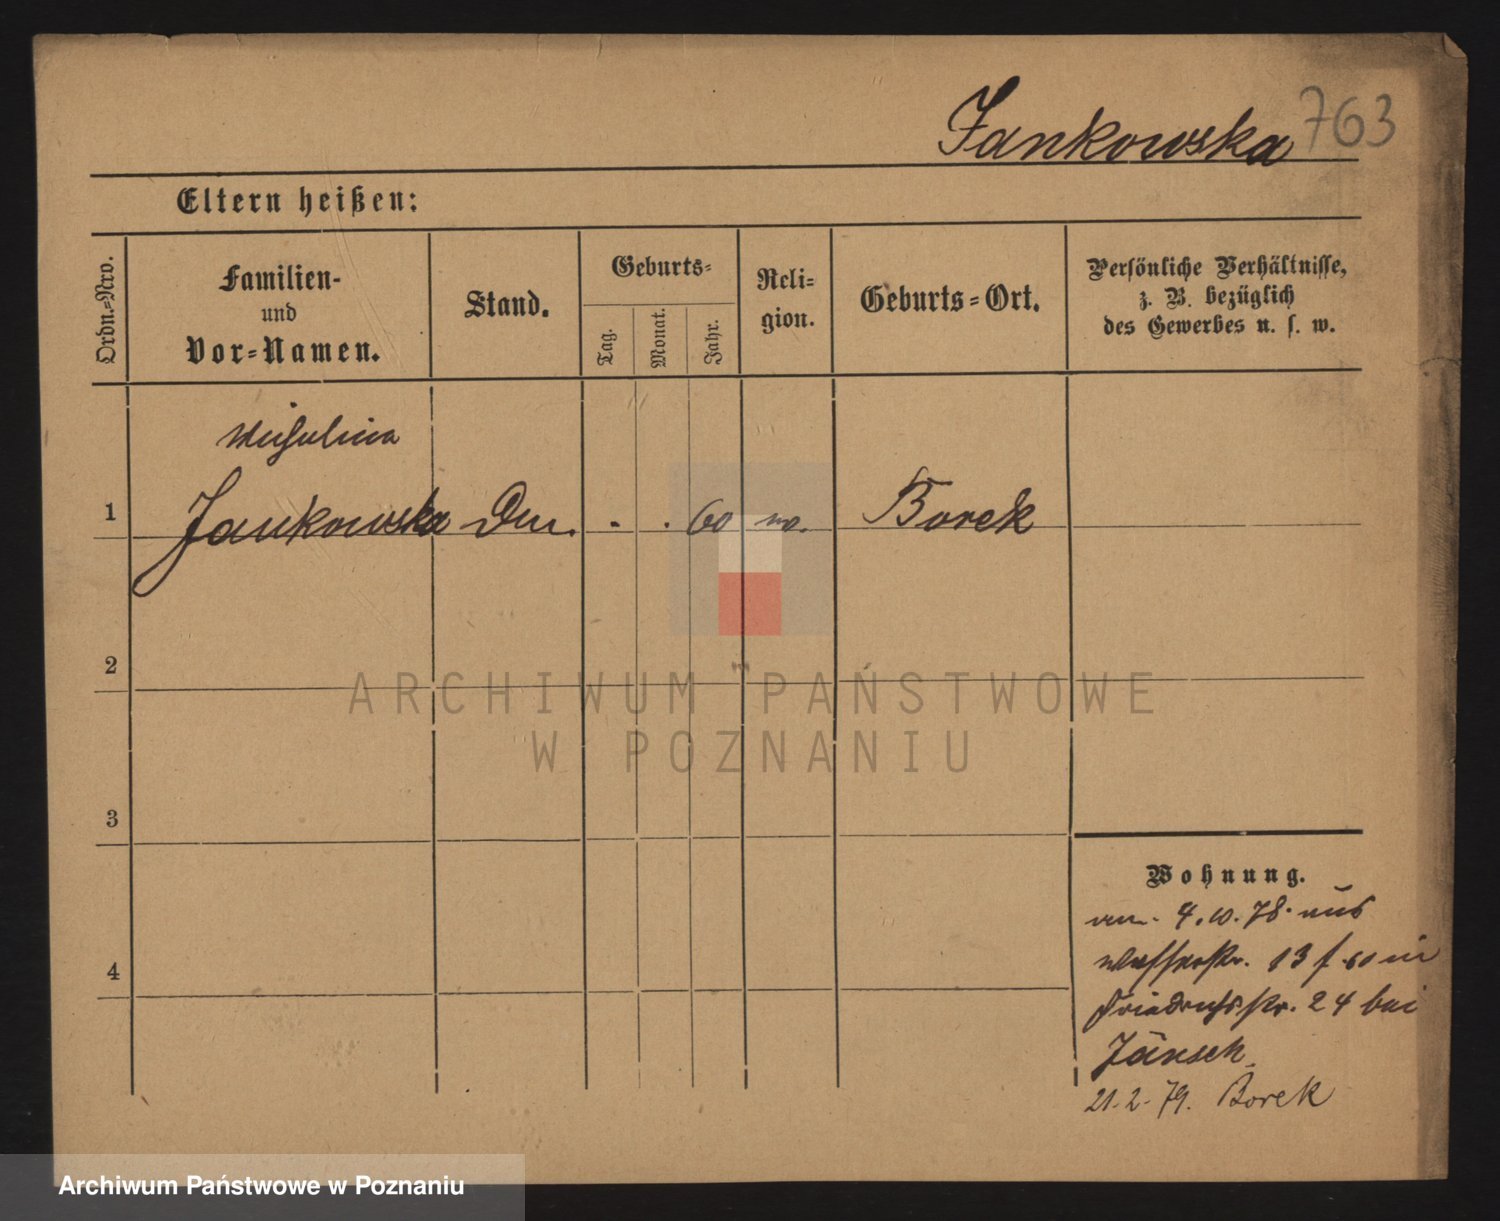 Jankowska 763
Eltern heißen:
Ordn.=Nro.
Familien-
und
Vor=Namen.
Stand.
Geburts=
Tag.
Monat.
Jahr.
Reli=
gion.
Geburts=Ort.
Persönliche Verhältnisse,
z. B. bezüglich
des Gewerbes u. s. w.
1
Jankowska
. . 60
Borek
2
3
4
Wohnung.
4.10.78. aus
13
Friedrichstr. 24 bei
Jänsch
21.2.79. Borek
ARCHIWUM PAŃSTWOWE
W POZNANIU
Archiwum Państwowe w Poznaniu